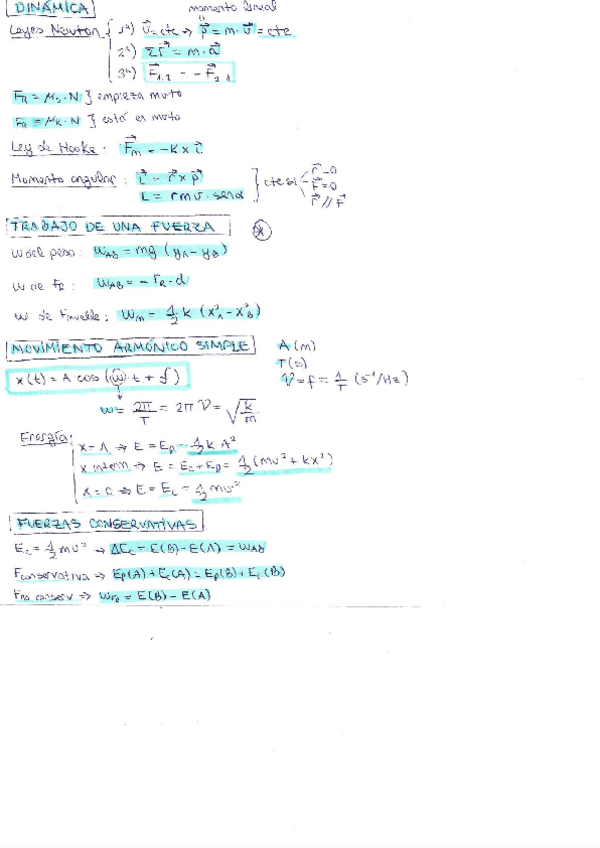 DINÁMICA
momento lineal
Leyes Newton
1ª) v⃗ = cte ⇒ p⃗ = m · v⃗ = cte
2ª) ΣF⃗ = m · a⃗
3ª) F⃗1,2 = - F⃗2,1
FR = μs · N } empieza mvto
FR = μk · N } está en mvto
Ley de Hooke: F⃗m = -K x i⃗
Momento angular: L⃗ = r⃗ x p⃗
L = rmv · senα } cte si
r⃗ = 0
F⃗ = 0
r⃗ // F⃗
TRABAJO DE UNA FUERZA
W del peso: WAB = mg (yA - yB)
W de FR: WAB = - FR · d
W de Fmuelle: Wm = 1/2 k (x²A - x²B)
MOVIMIENTO ARMÓNICO SIMPLE
A (m)
T (s)
x(t) = A cos (ω · t + δ)
ν = f = 1/T (s⁻¹/Hz)
ω = 2π/T = 2πν = √k/m
Energía:
x = A ⇒ E = Ep = 1/2 k A²
x interm ⇒ E = Ec + Ep = 1/2 (mv² + kx²)
x = 0 ⇒ E = Ec = 1/2 mv²
FUERZAS CONSERVATIVAS
Ec = 1/2 mv² → ΔEc = E(B) - E(A) = WAB
Fconservativa ⇒ Ep(A) + Ec(A) = Ep(B) + Ec(B)
Fno conserv ⇒ WFR = E(B) - E(A)